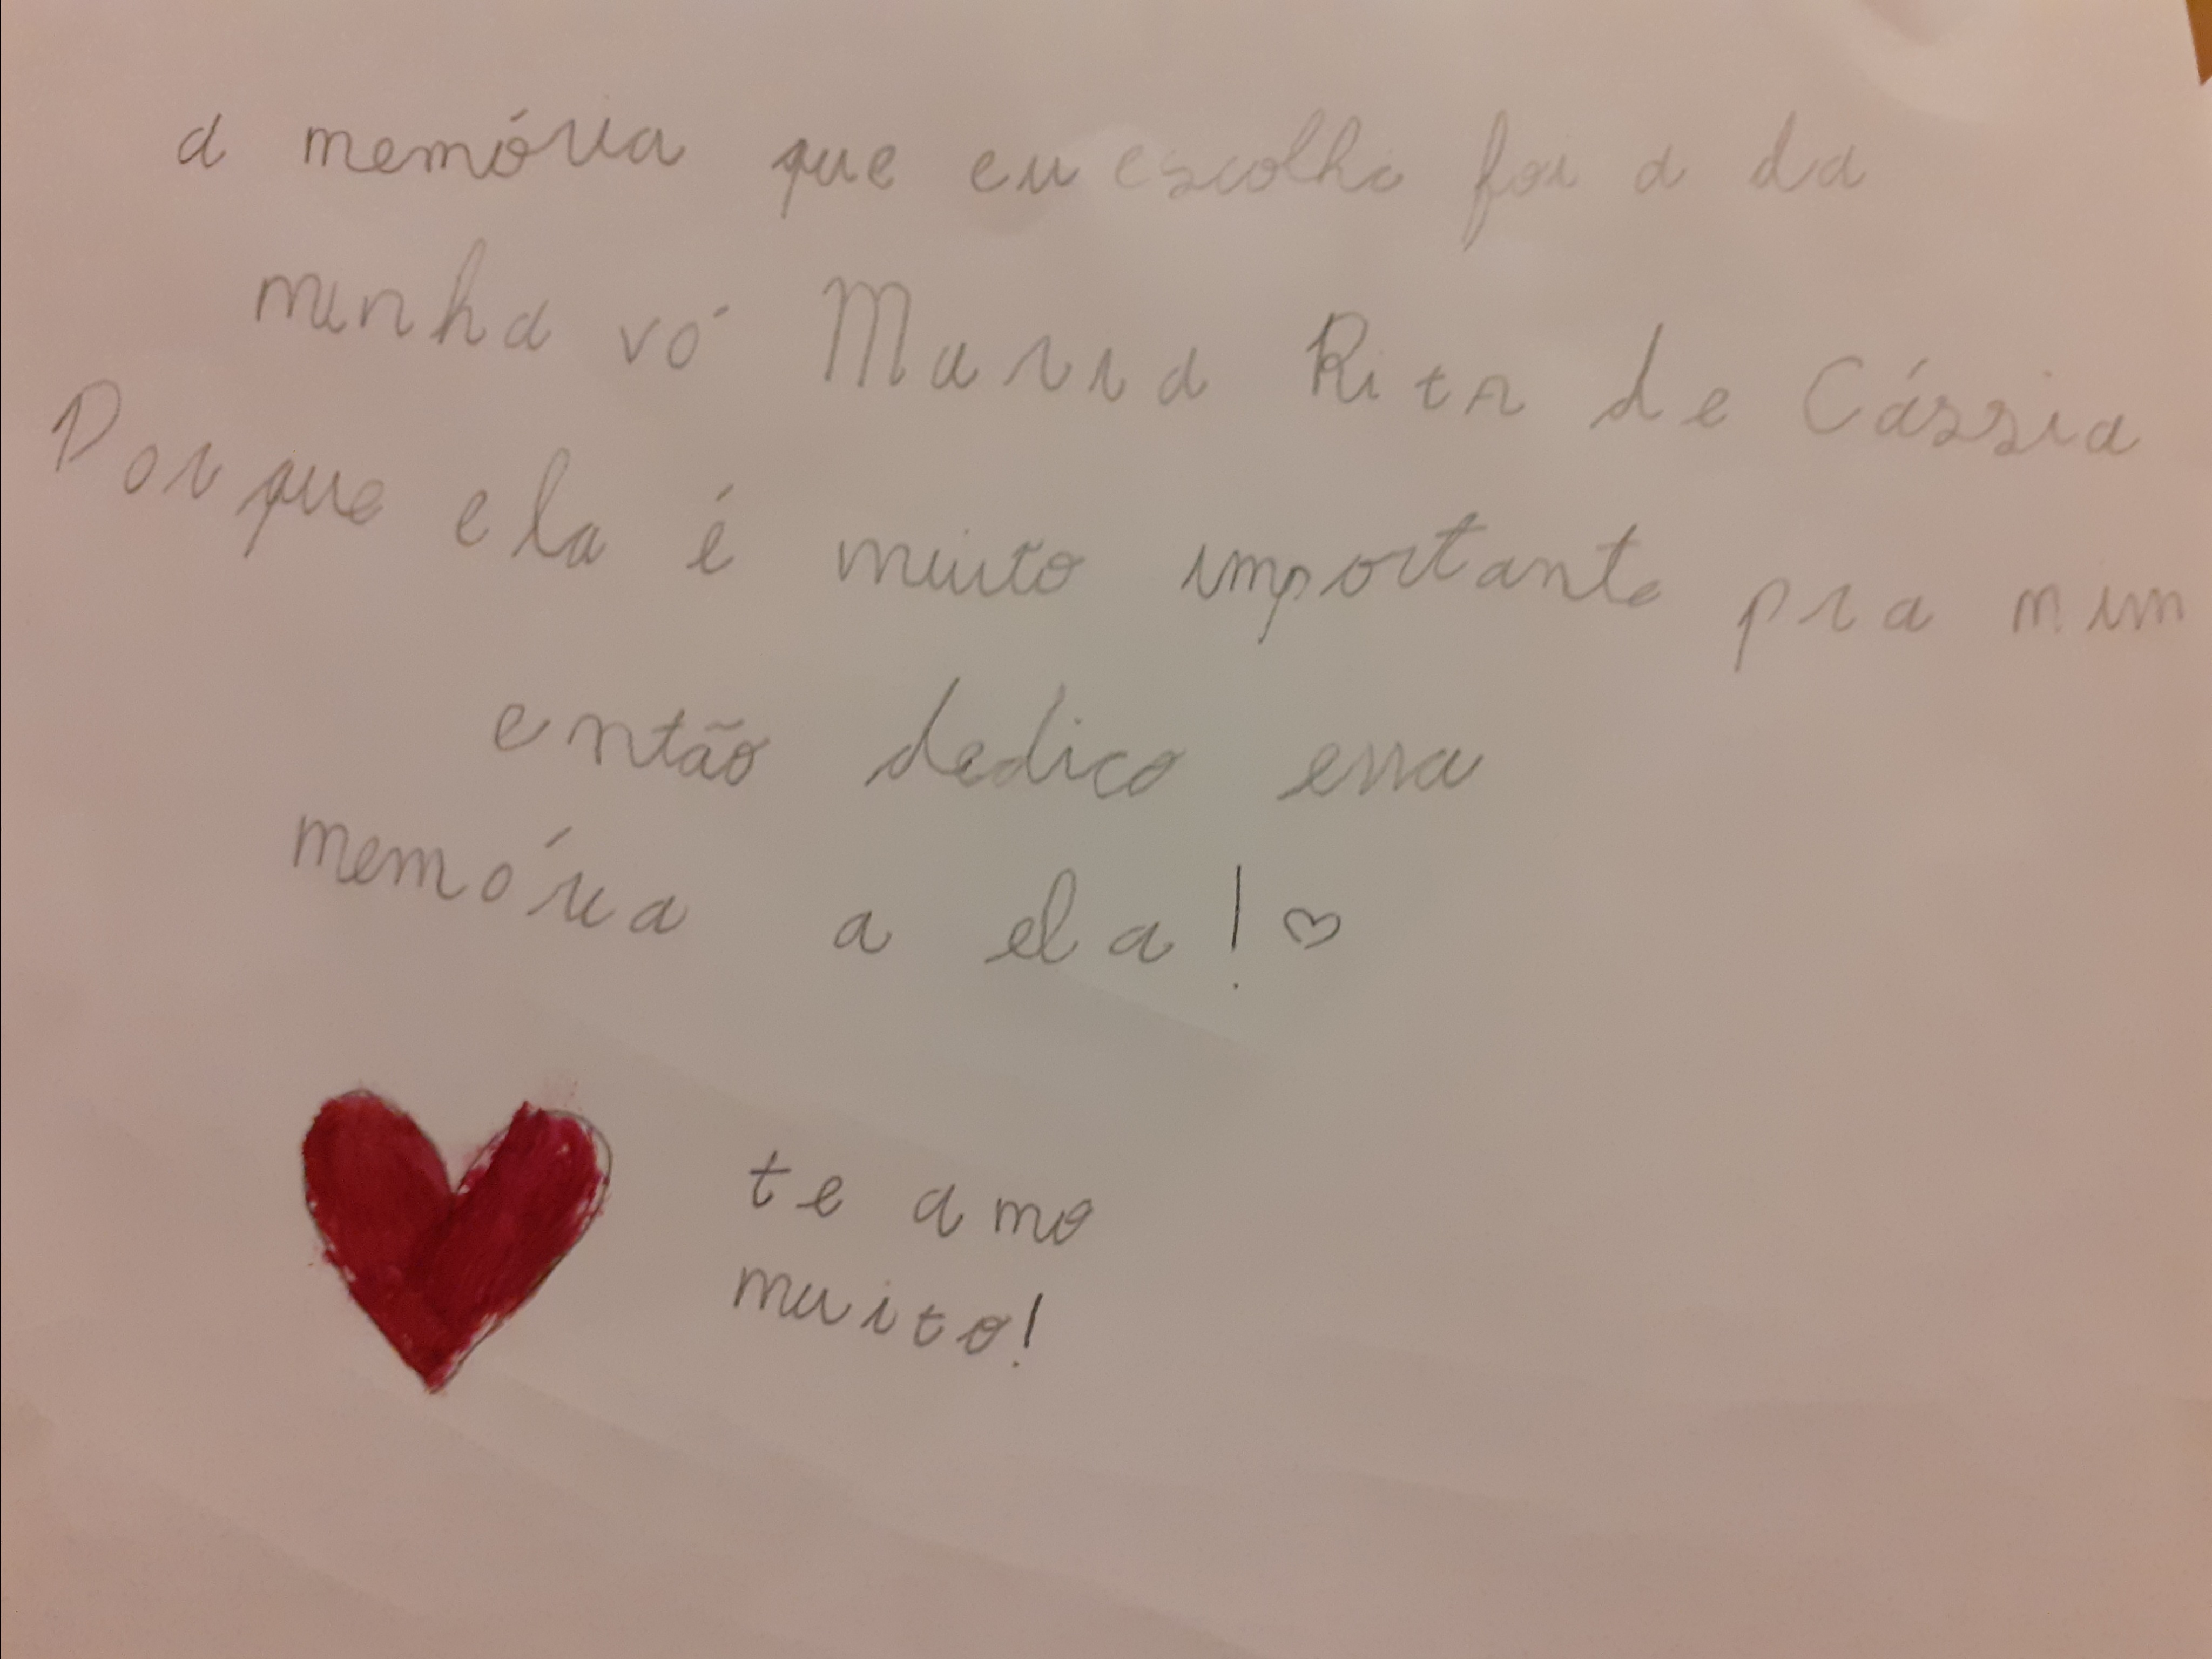 a memória que eu escolhi foi a da
minha vó Maria Rita de Cássia
Porque ela é muito importante pra mim
então dedico essa
memória a ela! ♡
te amo
muito!